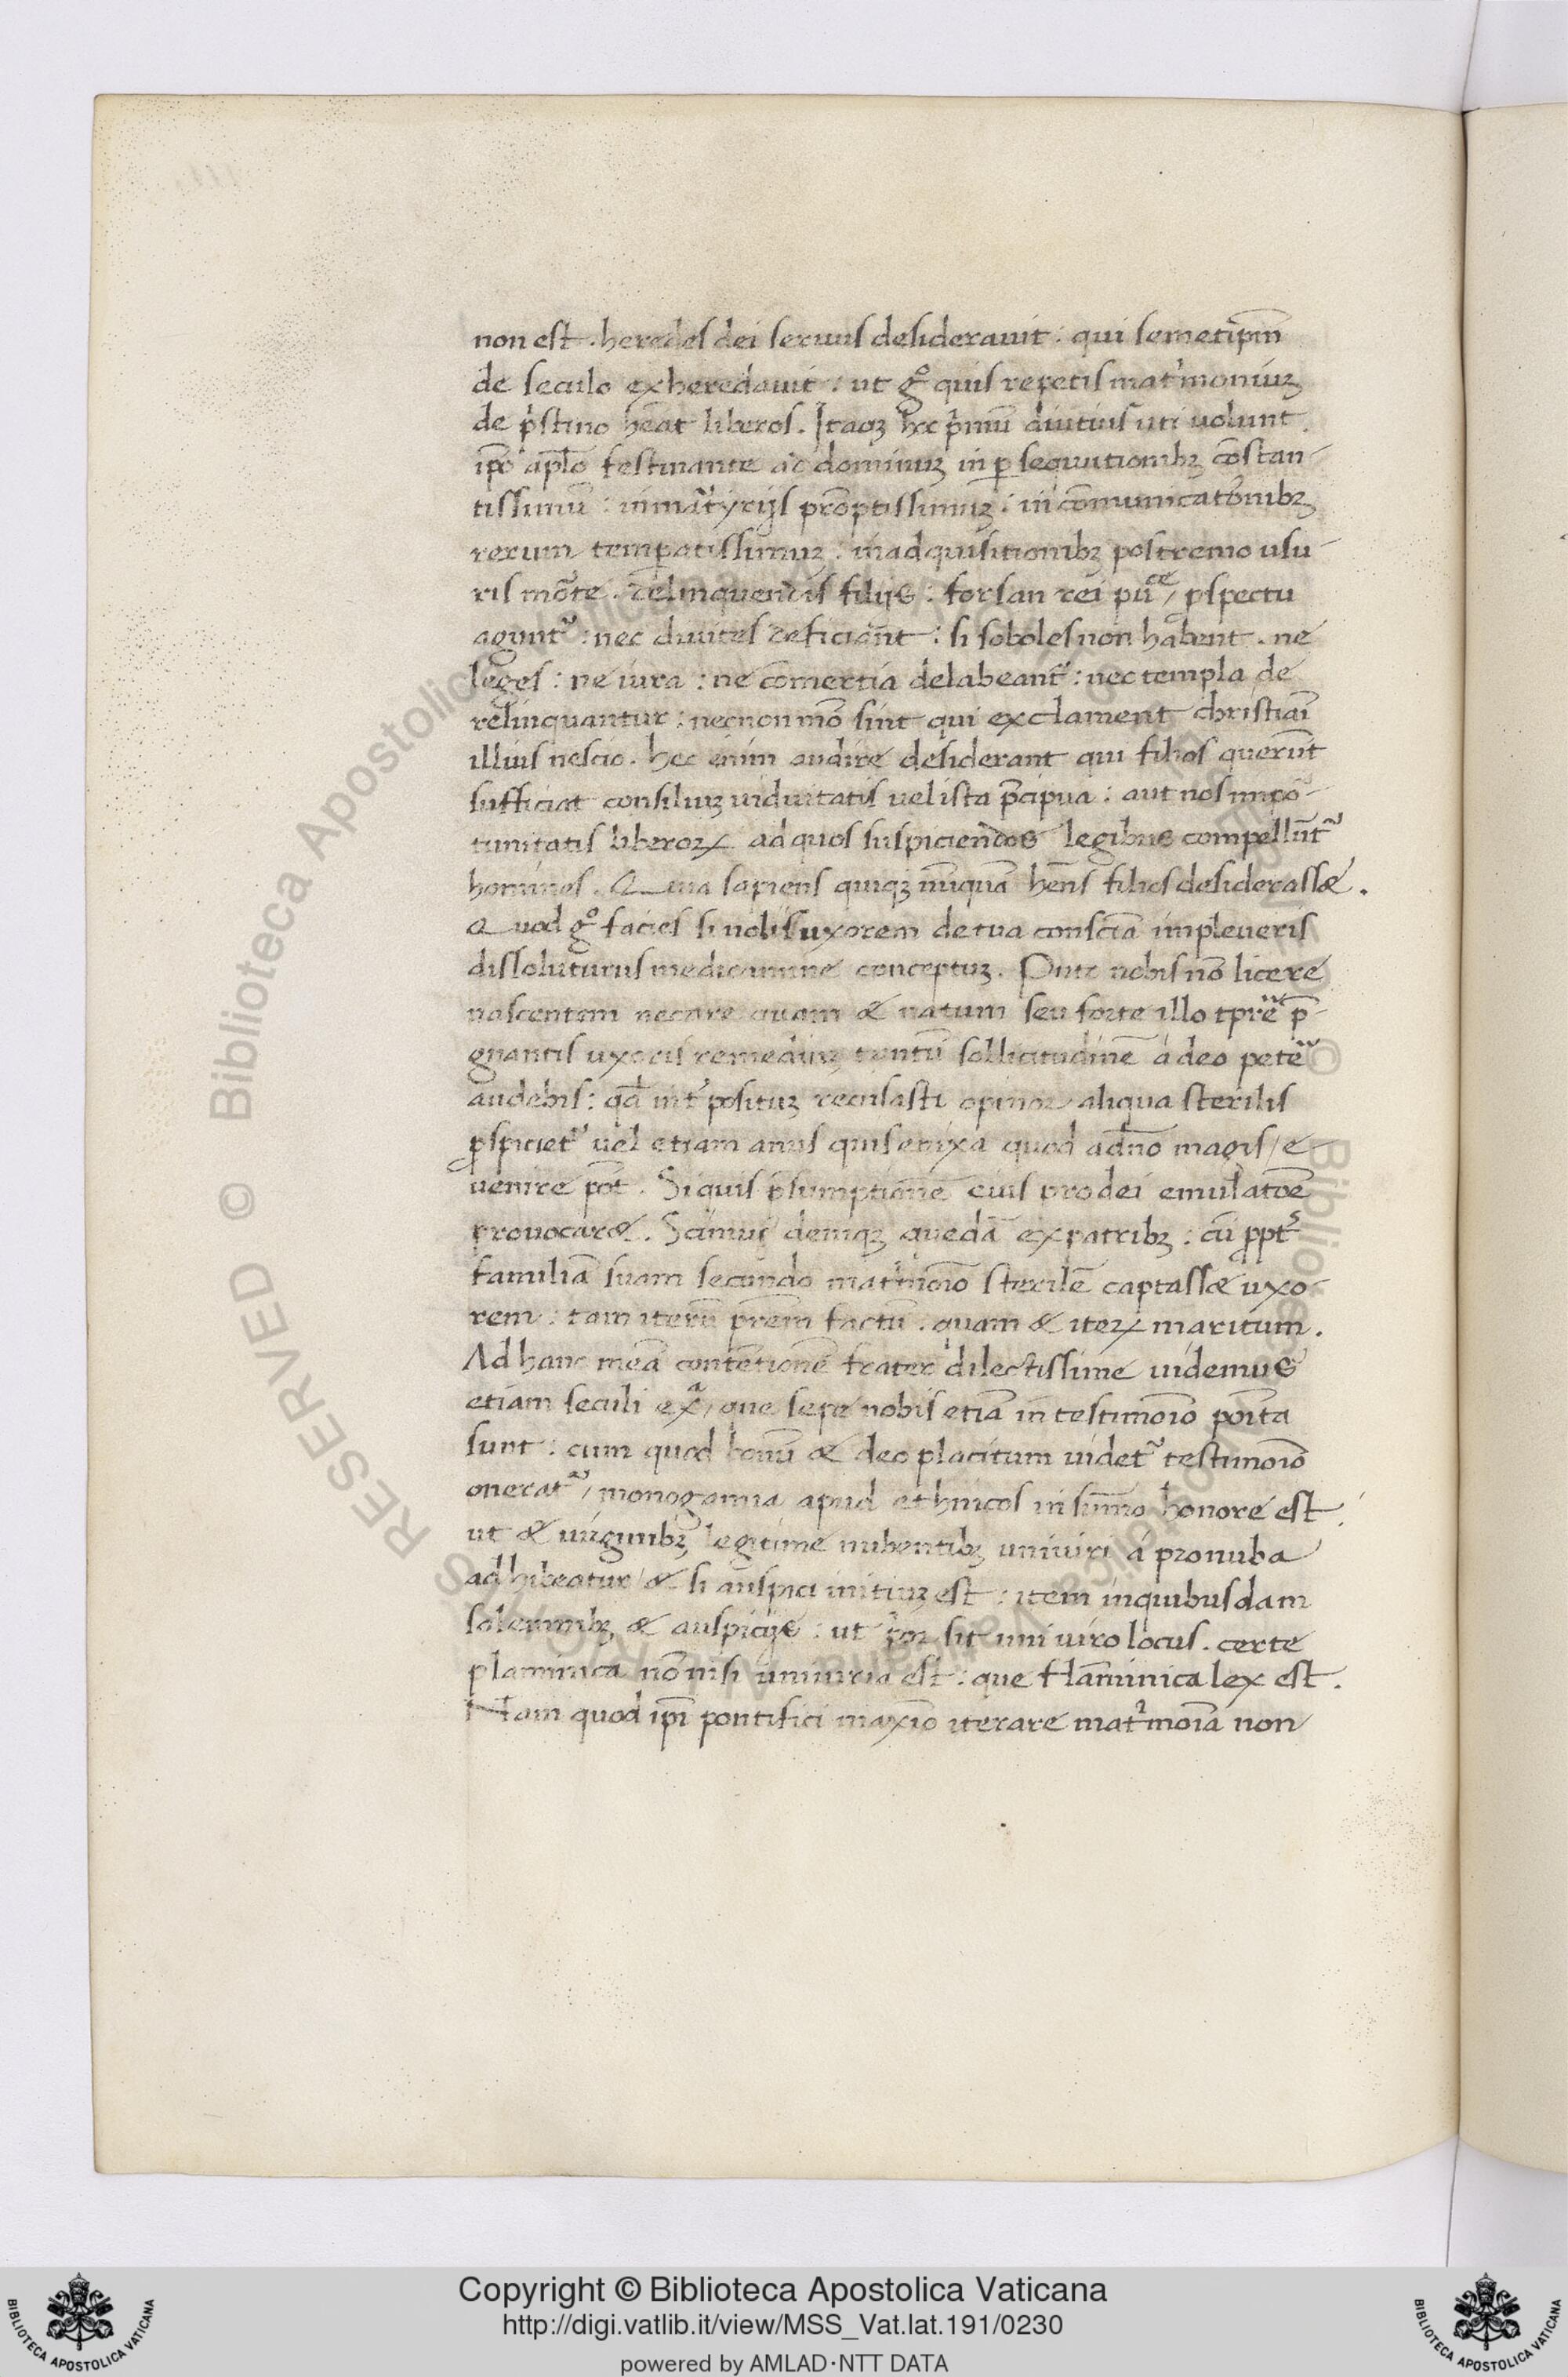 non est . heredes dei seruus desiderauit : qui semetip̄m
de seculo exheredauit : ut gͦ quis repetis mat̓moniuꝫ
de p̓stino hēat liberos . Itaqꝫ hec p̓mū diutius uti uolunt .
ip̄o ap̄lo festinante ad dominuꝫ in ꝑsequutionibꝫ cōstan-
tissimū : in mar̄tyrijs prōptissimuꝫ : in cōmunicatōnibꝫ
rerum temꝑatissimuꝫ : in adquisitionibꝫ postremo usu-
ris mōte . delinquendis filijs : forsan rei pu͞ce / ꝓspectu
agunt᷑ : nec ciuites deficiant : si soboles non habent . ne
leges : ne iura : ne cōmertia delabeant᷑ : nec templa de
relinquantur : necnon mō sint qui exclament christiāi
illius nescio . hec enim audire desiderant qui filios querūt
sufficiat consiliuꝫ uiduitatis uel ista p̄cipua : aut nos inpo-
tunitatis liberoꝝ ad quos suspiciendos legibus compellūt᷑
homines . Quia sapiens quiqꝫ nūquā hēns filios desiderassæ .
Quod gͦ facies si nobis uxorem de tua consciā impleueris
dissoluturus medicamine conceptuꝫ . Puto nobis nō licere
nascentem necare quam & natum seu forte illo tp̄re p̄-
gnantis uxoris remediuꝫ tantū sollicitudinē a deo petē
audebis : qd̄ int̓ posituꝫ recusasti opinor aliqua sterilis
ꝓspiciet᷑ uel etiam anus quis enixa quod adn̄o magis / e
uenire pōt . Siquis p̄sumptionē eius pro dei emulatōe
prouocaræ . Scimus deniqꝫ quedā ex patribꝫ : cū ꝓpt᷑
familiā suam secundo mat̓moīo sterilē captassæ uxo-
rem : tam iterū pr̄em factū . quam & iteꝝ maritum .
Ad hanc meā contētionē frater dilectissime uidemus
etiam seculi exͣ / que sepe nobis etiā in testimōio poīta
sunt : cum quod bonū & deo placitum uidet᷑ testimoīo
onerat᷑ / monogamia apud ethnicos in sūmo honore est :
ut & uirginibꝫ legitime nubentibꝫ uniuiri a pronuba
adhibeatur / & si auspici initiuꝫ est : item in quibusdam
solemnibꝫ & auspicijs : ut sit uni uiro locus . certe
plaminica nō nisi uniuiria est : que flāminica lex est .
Nam quod ip̄i pontifici maxīo iterare mat̓moīa non
Copyright © Biblioteca Apostolica Vaticana
http://digi.vatlib.it/view/MSS_Vat.lat.191/0230
powered by AMLAD·NTT DATA